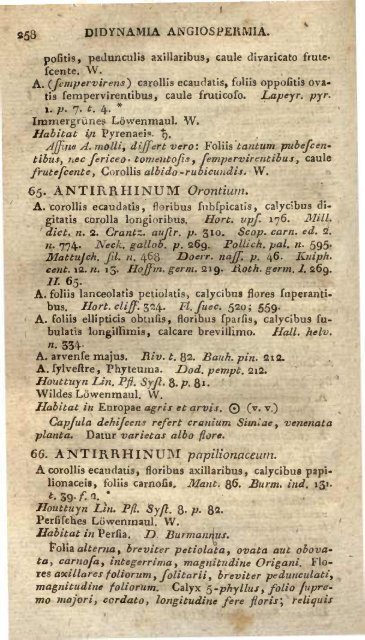 258 DIDYNAMIA ANGIOSPERMIA.
poſitis, pedunculis axillaribus, caule divaricato frute-
ſcente. W.
A. (ſempervirens) carollis ecaudatis, foliis oppoſitis ova-
tis ſempervirentibus, caule fruticoſo. Lapeyr. pyr.
1. p. 7. t. 4. *
Immergrünes Löwenmaul. W.
Habitat in Pyrenaeis. ♄.
Affine A. molli, differt vero: Foliis tantum pubeſcen-
tibus, nec ſericeo-tomentoſis, ſempervirentibus, caule
frutefcente, Corollis albido-rubicundis. W.
65. ANTIRRHINUM Orontium.
A. corollis ecaudatis, floribus ſubſpicatis, calycibus di-
gitatis corolla longioribus. Hort. upſ. 176. Mill.
dict. n. 2. Crantz. auſtr. p. 310. Scop. carn. ed. 2.
n. 774. Neck. gallob. p. 269. Pollich. pal. n. 595.
Mattuſch. ſil. n. 468. Doerr. naſſ. p. 46. Kniph.
cent. 12. n. 13. Hoffm. germ. 219. Roth. germ. I. 269.
II. 65.
A. foliis lanceolatis petiolatis, calycibus flores ſuperanti-
bus. Hort. cliff. 324. Fl. ſuec. 520; 559.
A. foliis ellipticis obtuſis, floribus ſparſis, calycibus ſu-
bulatis longiſſimis, calcare breviſſimo. Hall. helv.
n. 334.
A. arvenſe majus. Riv. t. 82. Bauh. pin. 212.
A. ſylveſtre, Phyteuma. Dod. pempt. 212.
Houttuyn Lin. Pfl. Syſt. 8. p. 81.
Wildes Löwenmaul. W.
Habitat in Europae agris et arvis. ⊙ (v. v.)
Capſula dehiſcens refert cranium Simiae, venenata
planta. Datur varietas albo flore.
66. ANTIRRHINUM papilionaceum.
A corollis ecaudatis, floribus axillaribus, calycibus papi-
lionaceis, foliis carnoſis. Mant. 86. Burm. ind. 131.
t. 39. f. 2. *
Houttuyn Lin. Pfl. Syſt. 8. p. 82.
Perſiſches Löwenmaul. W.
Habitat in Perſia. D. Burmannus.
Folia alterna, breviter petiolata, ovata aut obova-
ta, carnoſa, integerrima, magnitudine Origani. Flo-
res axillares foliorum, ſolitarii, breviter pedunculati,
magnitudine foliorum. Calyx 5-phyllus, folio ſupre-
mo majori, cordato, longitudine fere floris; reliquis